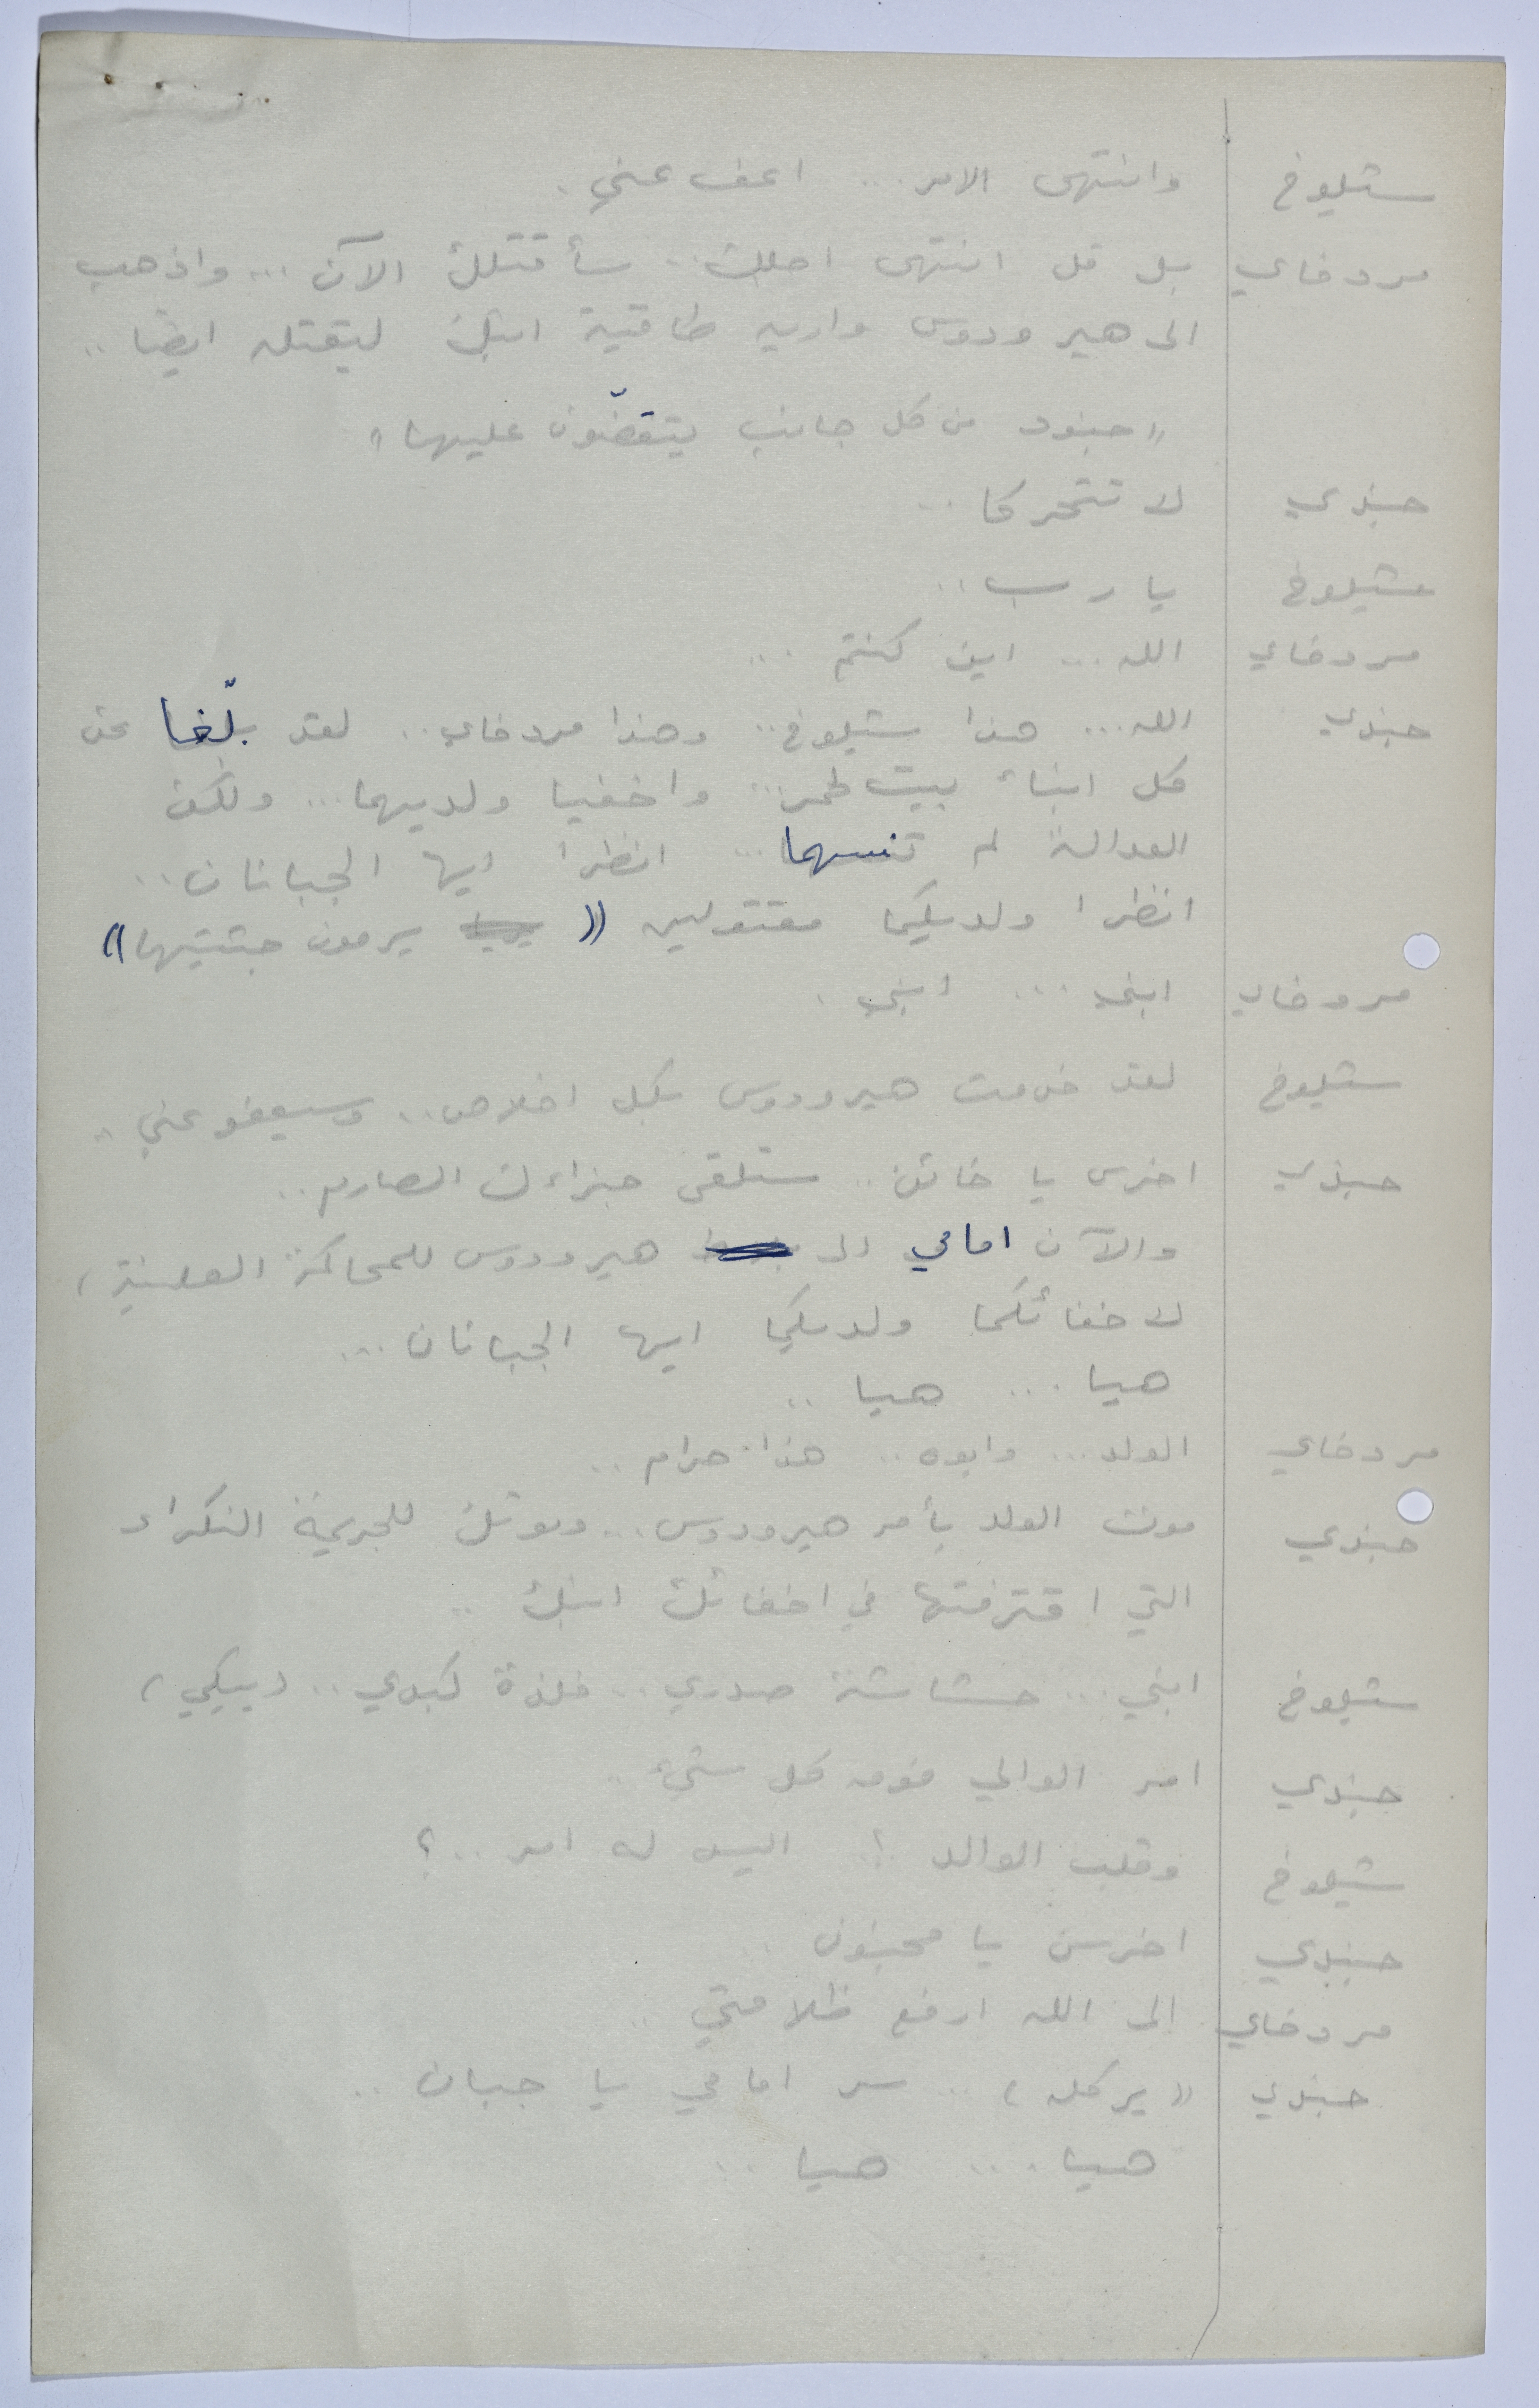 شيلوخ وانتهى الامر ... اعف عني .
مردخاي بل قل انتهى اجلك .. سأقتلك الآن ... واذهب
الى هيرودوس واريه طاقية ابنك ليقتله ايضا ..
"جنود من كل جانب ينقضّون عليهما"
جندي لا تتحركا ..
شيلوخ يا رب ..
مردخاي الله ... اين كنتم ...
جندي الله ... هذا شيلوخ .. وهذا مردخاي .. لقد بلّغا عن
كل ابناء بيت لحم ... واخفيا ولديهما ... ولكن
العدالة لم تنسهما ... انظرا ايها الجبانان ..
انظرا ولديكما مقتولين (( يرمون جثتيهما ))
مردخاي ابني ... ابني .
شيلوخ لقد خدمت هيرودوس بكل اخلاص .. وسيعفو عني ..
جندي اخرس يا خائن .. ستلقى جزاءك الصارم ..
والآن امامي الى هيرودوس للمحاكمة العلنية ،
لاخفائكما ولديكما ايها الجبانان ...
هيا ... هيا ..
مردخاي الولد ... وابوه .. هذا حرام ..
جندي موت الولد بأمر هيرودوس ... وموتك للجريمة النكراء
التي اقترفتها في اخفائك ابنك ..
شيلوخ ابني ... حشاشة صدري .. فلذة كبدي .. (يبكي)
جندي امر الوالي فوق كل شيء ..
شيلوخ وقلب الوالد ؟. اليس له امر ..؟
جندي اخرس يا مجنون ..
مردخاي الى الله ارفع ظلامتي ..
جندي "يركله" .. سر امامي يا جبان ..
هيا ... هيا ..